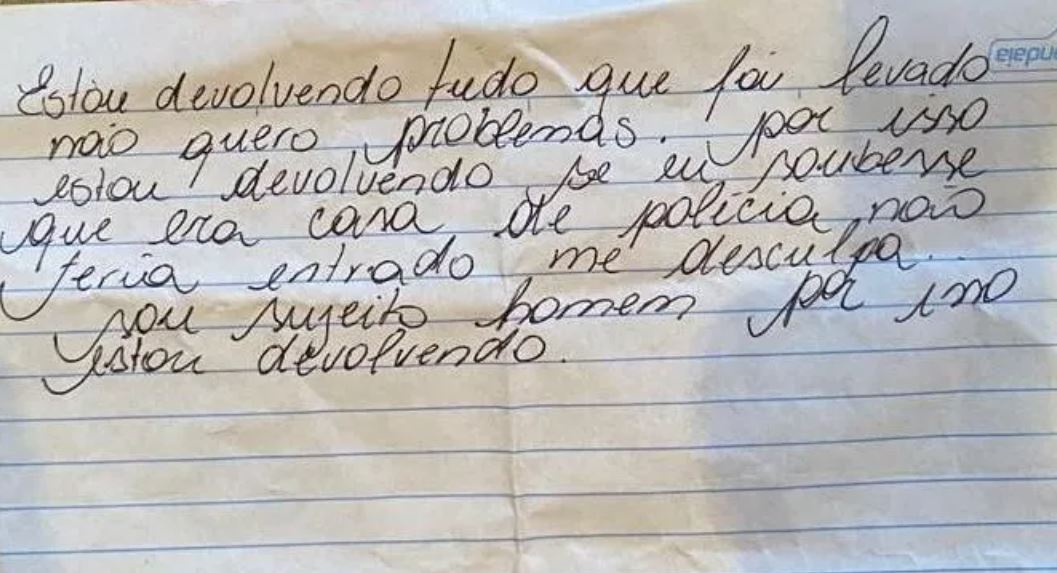 Estou devolvendo tudo que foi levado
não quero problemas. por isso
estou devolvendo se eu soubesse
que era casa de polícia não
teria entrado me desculpa..
sou sujeito homem por isso
estou devolvendo.